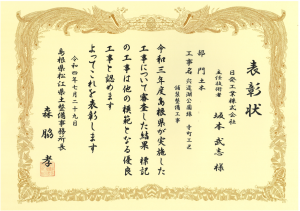 表彰状
日発工業株式会社
主任技術者
坂本 武志 様
部門 土木
工事名 宍道湖公園線 寺町工区
舗装整備工事
令和三年度島根県が実施した
工事について審査した結果 標記
の工事は他の模範となる優良
工事と認めます
よってこれを表彰します
令和四年七月二十九日
島根県松江県土整備事務所長
森脇 孝